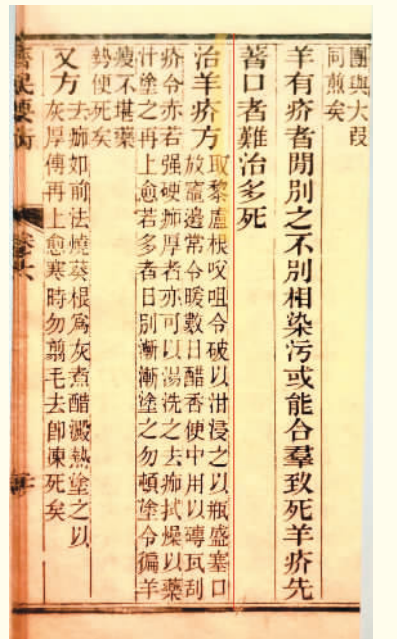 團與大段
同煎矣
羊有疥者閒別之不別相染污或能合羣致死羊疥先
著口者難治多死
治羊疥方
取黎盧根㕮咀令破以泔浸之以瓶盛塞口
放竈邊常令暖數日醋香便中用以磚瓦刮
疥令亦若强硬痂厚者亦可以湯洗之去痂拭燥以藥
汁塗之再上愈若多者日別漸漸塗之勿頓塗令徧羊
瘦不堪藥
勢便死矣
又方
去痂如前法燒葵根爲灰煮醋澱熱塗之以
灰厚傅再上愈寒時勿翦毛去卽凍死矣
齊民要術
卷六